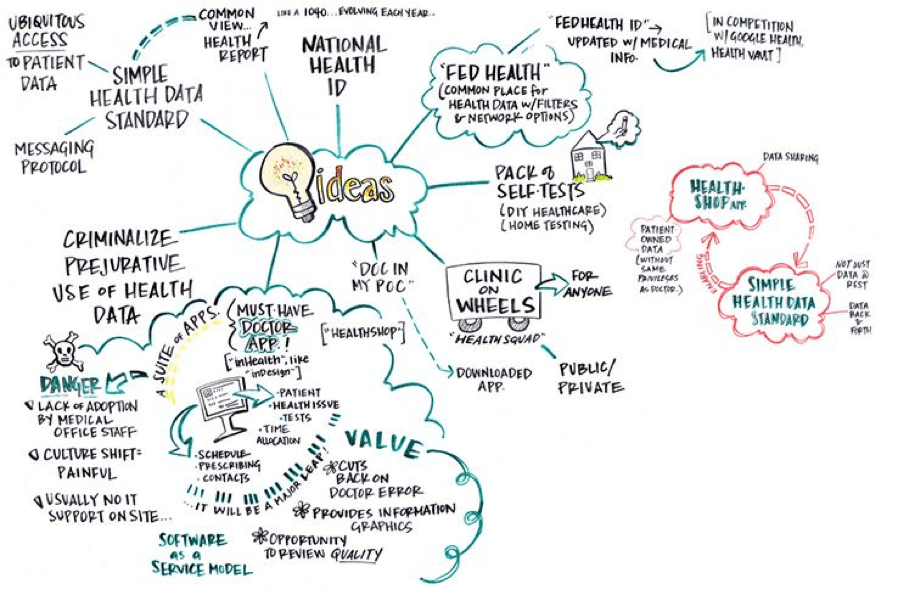 UBIQUITOUS
ACCESS
TO PATIENT
DATA
COMMON
VIEW...
HEALTH
REPORT
LIKE A 1040...EVOLVING EACH YEAR..
SIMPLE
HEALTH DATA
STANDARD
MESSAGING
PROTOCOL
NATIONAL
HEALTH
ID
"FED HEALTH"
(COMMON PLACE for
HEALTH DATA W/FILTERS
& NETWORK OPTIONS)
"FEDHEALTH ID"
UPDATED W/ MEDICAL
INFO.
[IN COMPETITION
W/ GOOGLE HEALTH,
HEALTH VAULT]
ideas
PACK of
SELF-TESTS
(DIY HEALTHCARE)
(HOME TESTING)
DATA SHARING
HEALTH-
SHOP APP.
PATIENT-
OWNED
DATA
(WITHOUT
SAME
PRIVILEGES
AS DOCTOR.)
ENABLING
SIMPLE
HEALTH DATA
STANDARD
NOT JUST
DATA @
REST
DATA
BACK &
FORTH
CRIMINALIZE
PREJURATIVE
USE OF HEALTH
DATA
"DOC IN
MY POC"
DOWNLOADED
APP.
CLINIC
ON
WHEELS
"HEALTH SQUAD"
FOR
ANYONE
PUBLIC/
PRIVATE
A SUITE OF APPS.
(MUST-HAVE
DOCTOR
APP.!
["HEALTHSHOP"]
["inHealth", like
"inDesign"]
DANGER
LACK OF ADOPTION
BY MEDICAL
OFFICE STAFF
CULTURE SHIFT=
PAINFUL
USUALLY NO IT
SUPPORT ON SITE...
• PATIENT
• HEALTH ISSUE
• TESTS
• TIME
ALLOCATION
• SCHEDULE
• PRESCRIBING
• CONTACTS
...IT WILL BE A MAJOR LEAP!
VALUE
CUTS
BACK ON
DOCTOR ERROR
PROVIDES INFORMATION
GRAPHICS
OPPORTUNITY
TO REVIEW QUALITY
SOFTWARE
as a
SERVICE MODEL